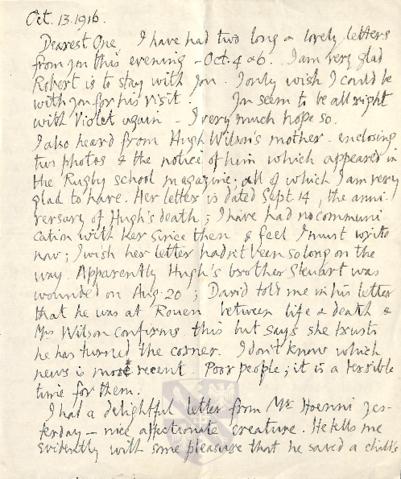 Oct. 13. 1916.
Dearest One, I have had two long & lovely letters
from you this evening - Oct. 4 & 6. I am very glad
Robert is to stay with you. I only wish I could be
with you for his visit. You seem to be all right
with Violet again - I very much hope so.
I also heard from Hugh Wilson's mother - enclosing
two photos & the notice of him which appeared in
the Rugby school magazine: all of which I am very
glad to have. Her letter is dated Sept. 14, the anni-
versary of Hugh's death; I have had no communi
cation with her since then & feel I must write
now; I wish her letter hadn't been so long on the
way. Apparently Hugh's brother Steuart was
wounded on Aug. 20; David told me in his letter
that he was at Rouen between life & death &
Mrs Wilson confirms this but says she trusts
he has turned the corner. I don't know which
news is most recent. Poor people; it is a terrible
time for them.
I had a delightful letter from Mr. Hoenni yes-
terday - nice affectionate creature. He tells me
evidently with some pleasure that he saved a child's